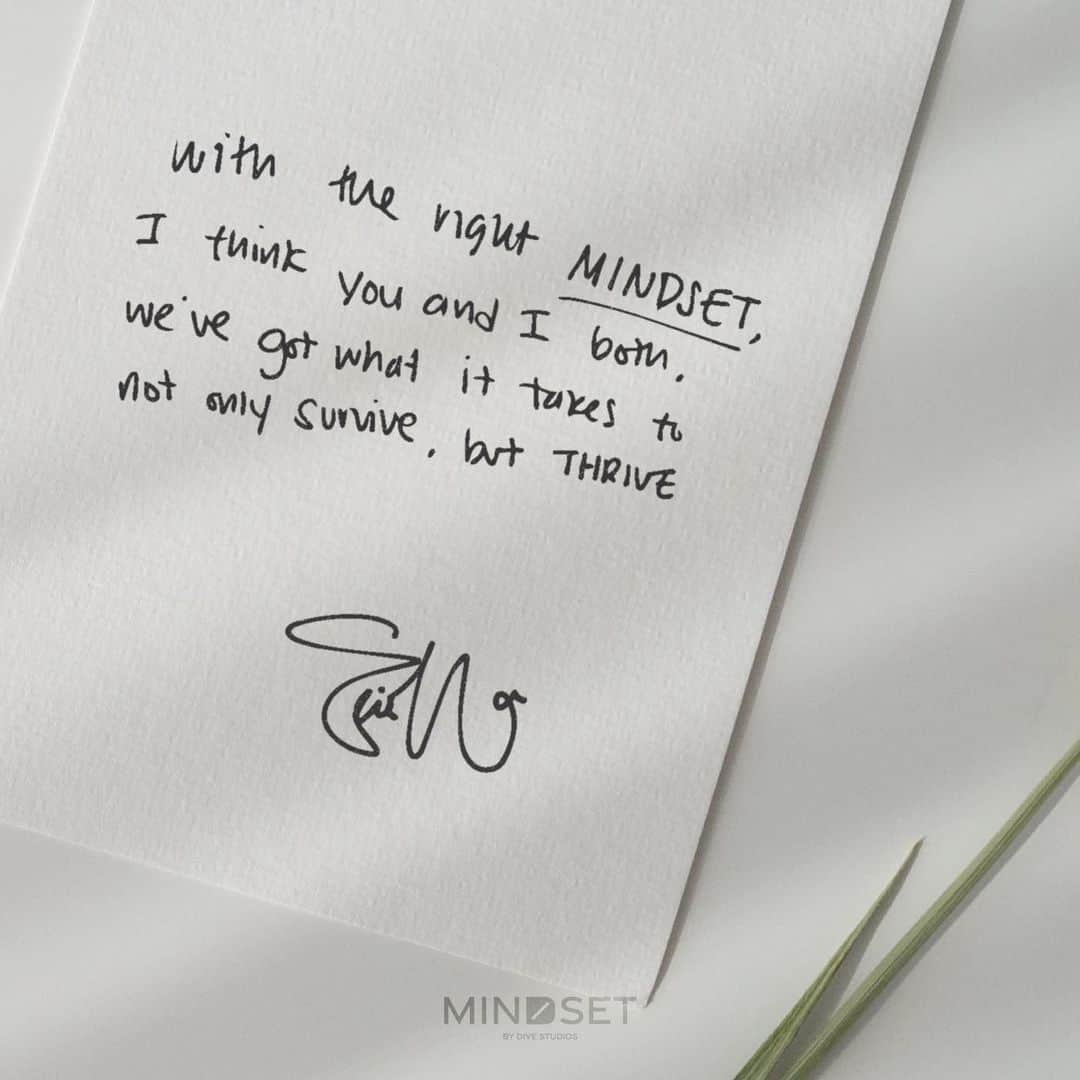 with the right MINDSET,
I think you and I both.
we've got what it takes to
not only survive, but THRIVE
MINDSET
BY DIVE STUDIOS